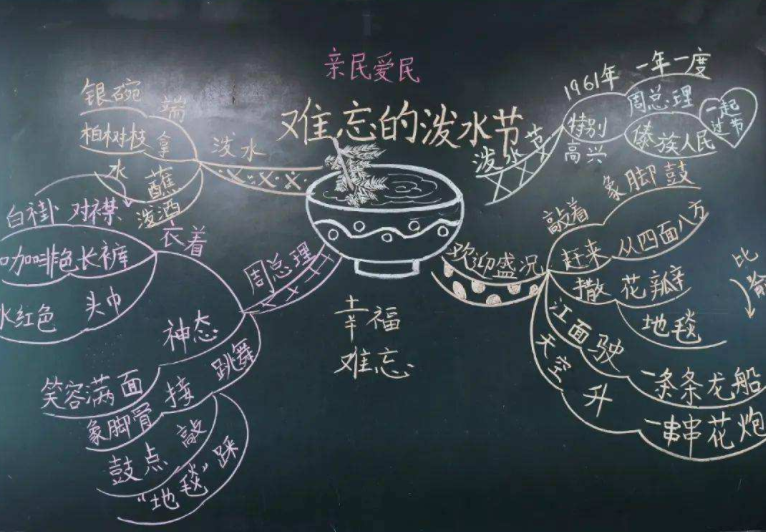 亲民爱民
难忘的泼水节
泼水
银碗 端
柏树枝 拿
水 蘸
泼洒
周总理
衣着
白褂 对襟
咖啡色长裤
水红色 头巾
神态
笑容满面
跳舞
接 象脚骨
敲 鼓点
踩 “地毯”
泼水节
1961年 一年一度
特别高兴
周总理
傣族人民
一起过节
欢迎盛况
敲着 象脚鼓
赶来 从四面八方
撒 花瓣
地毯
比
江面 驶 一条条龙船
天空 升 一串串花炮
幸福
难忘